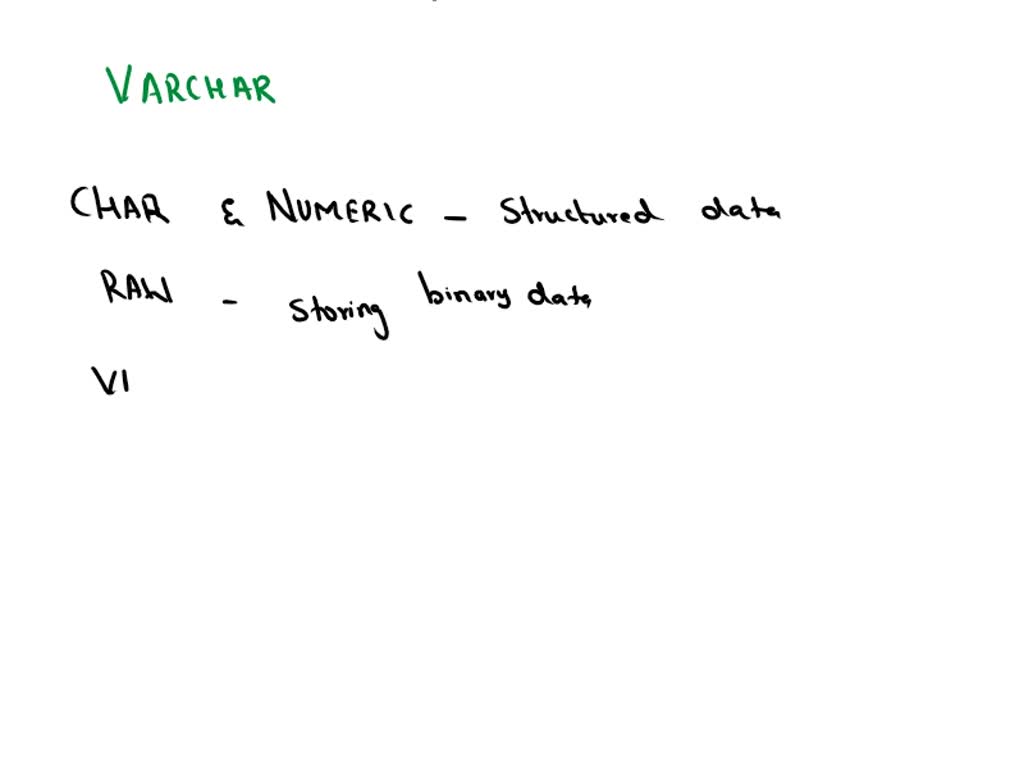 VARCHAR
CHAR & NUMERIC - Structured data
RAW - storing binary data
VI